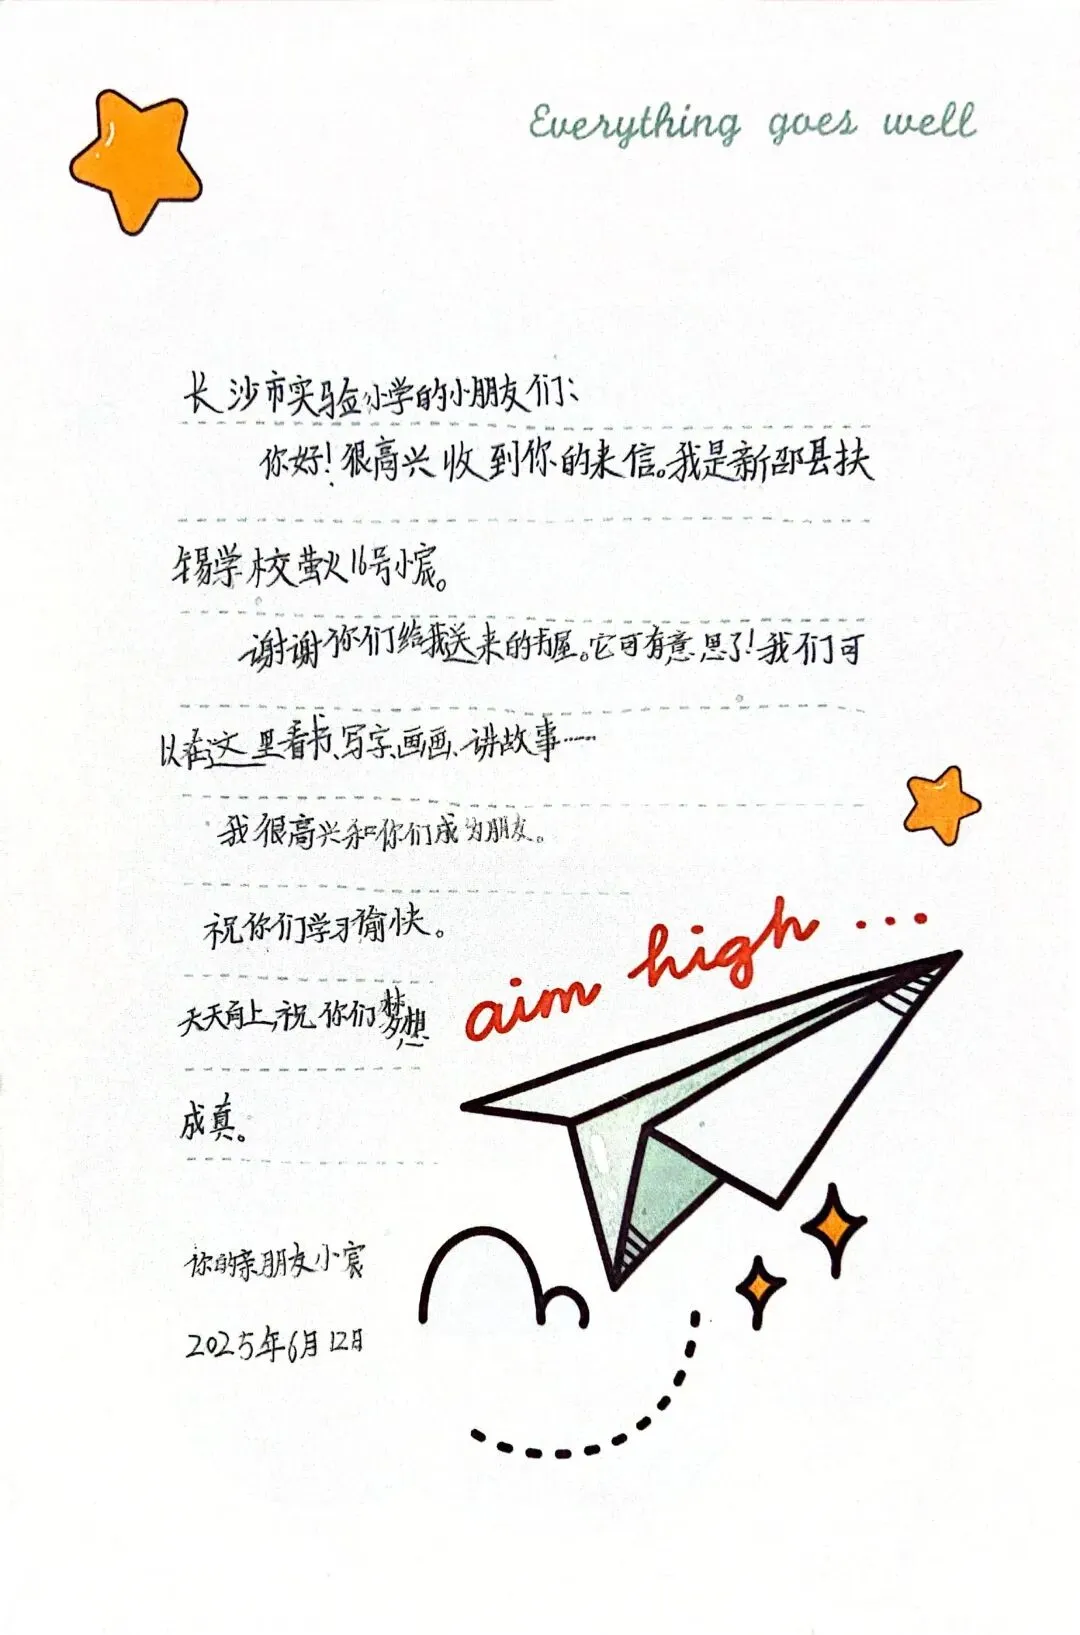 Everything goes well
长沙市实验小学的小朋友们：
你好！很高兴收到你的来信。我是新邵县扶
锡学校萤火16号小宸。
谢谢你们给我送来的书屋。它可有意思了！我们可
以在这里看书、写字、画画、讲故事……
我很高兴和你们成为朋友。
祝你们学习愉快。
天天向上，祝你们梦想
成真。
aim high ...
你的亲朋友小宸
2025年6月12日